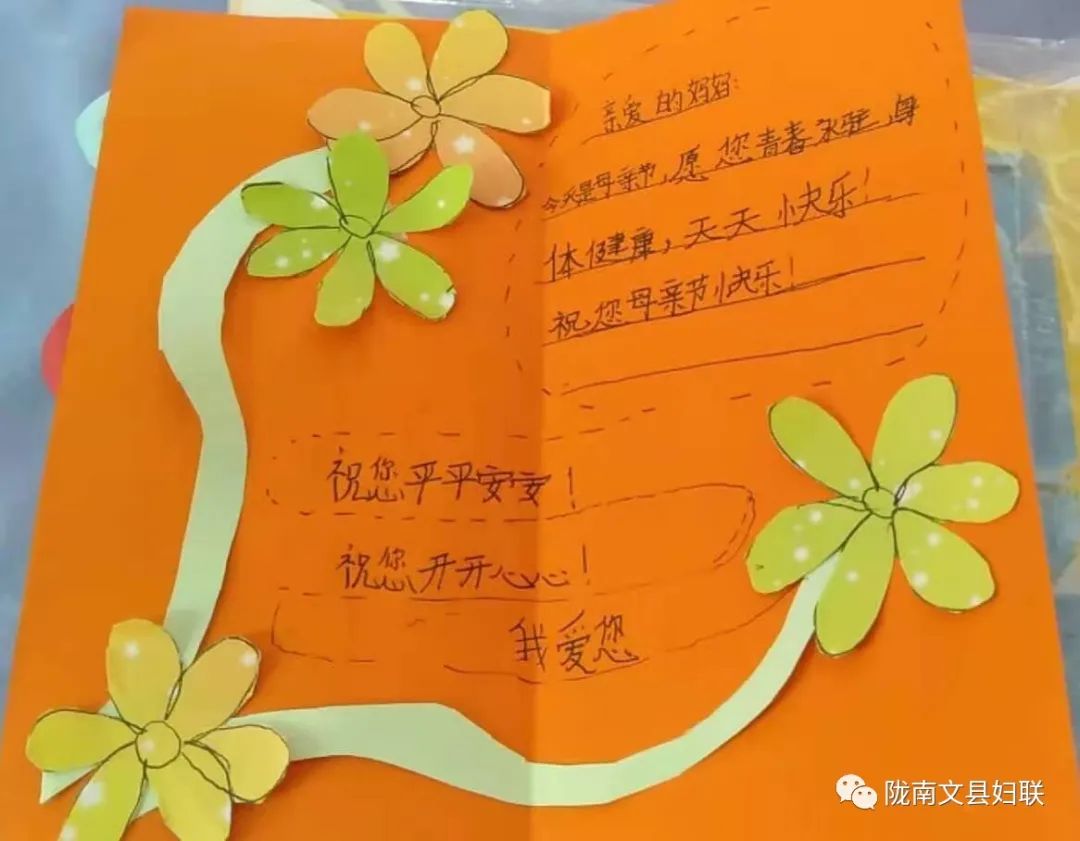 亲爱的妈妈:
今天是母亲节,愿您青春永驻,身
体健康,天天快乐!
祝您母亲节快乐!
祝您平平安安!
祝您开开心心!
我爱您
陇南文县妇联